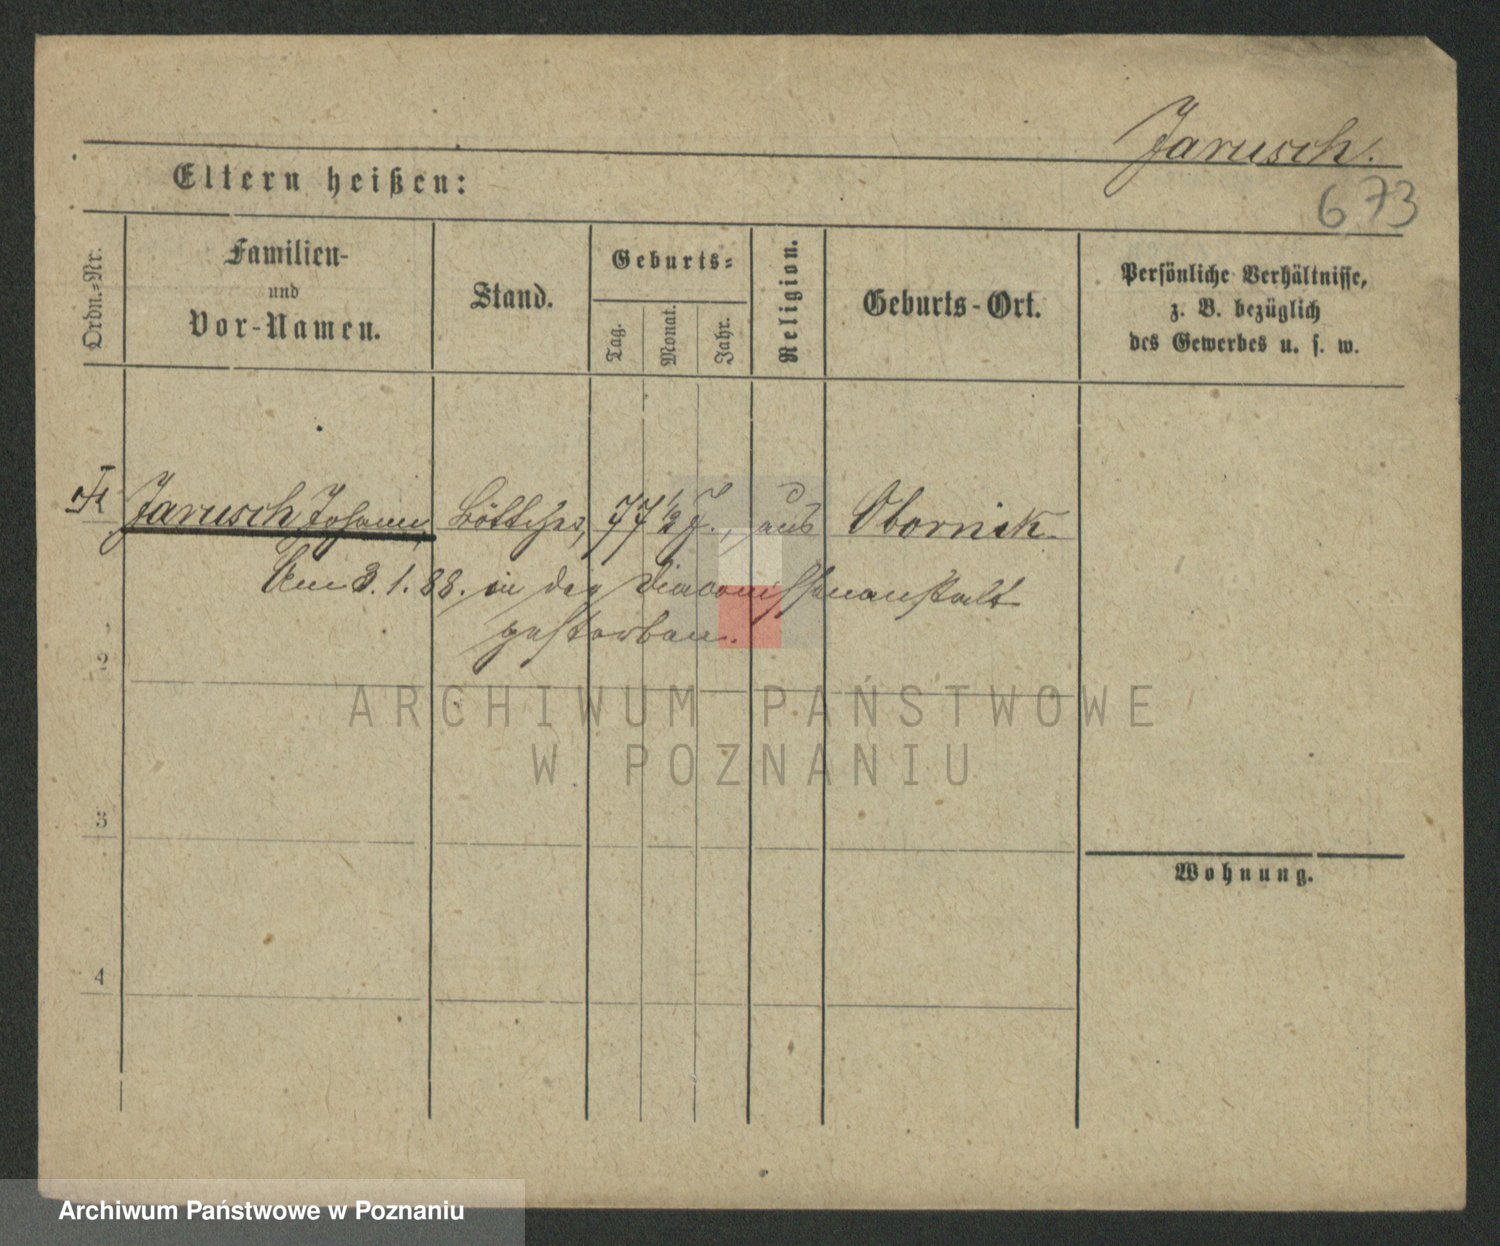 Jarusch.
Eltern heißen:
673
Ordn.-Nr.
Familien-
und
Vor-Namen.
Stand.
Geburts-
Tag.
Monat.
Jahr.
Religion.
Geburts-Ort.
Persönliche Verhältnisse,
z. B. bezüglich
des Gewerbes u. s. w.
Jarusch Johann, Böttcher, 77 1/2 J., aus Obornik.
Am 3.1.88. in der Diaconissenanstalt
gestorben.
2
ARCHIWUM PAŃSTWOWE
W POZNANIU
3
Wohnung.
4
Archiwum Państwowe w Poznaniu